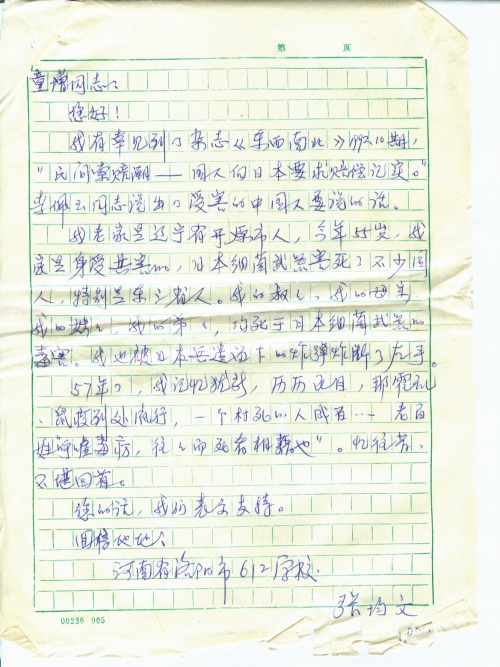 第 页
童增同志:
您好!
我有幸见到了杂志《东西南北》1992.10期,
"民间索赔潮——国人向日本要求赔偿记实。"
李佩云同志说出了受害的中国人要说的话。
我老家是辽宁省开原市人,今年55岁,我
家是身受其害的,日本细菌武器害死了不少国
人,特别是东三省人。我的叔叔、我的母亲
我的妹妹、我的弟弟,均死于日本细菌武器的
毒害。我也被日本兵遗留下的炸弹炸断了左手。
57年了,我记忆犹新,历历在目,那
、鼠疫到处流行,一个村死的人成百… 老百
姓呼 毒 ,往往而死者相藉也"。忆往昔、
不堪回首。
您的话,我们表示支持。
回信地址:
河南省洛阳市612学校
张均文
00236 905